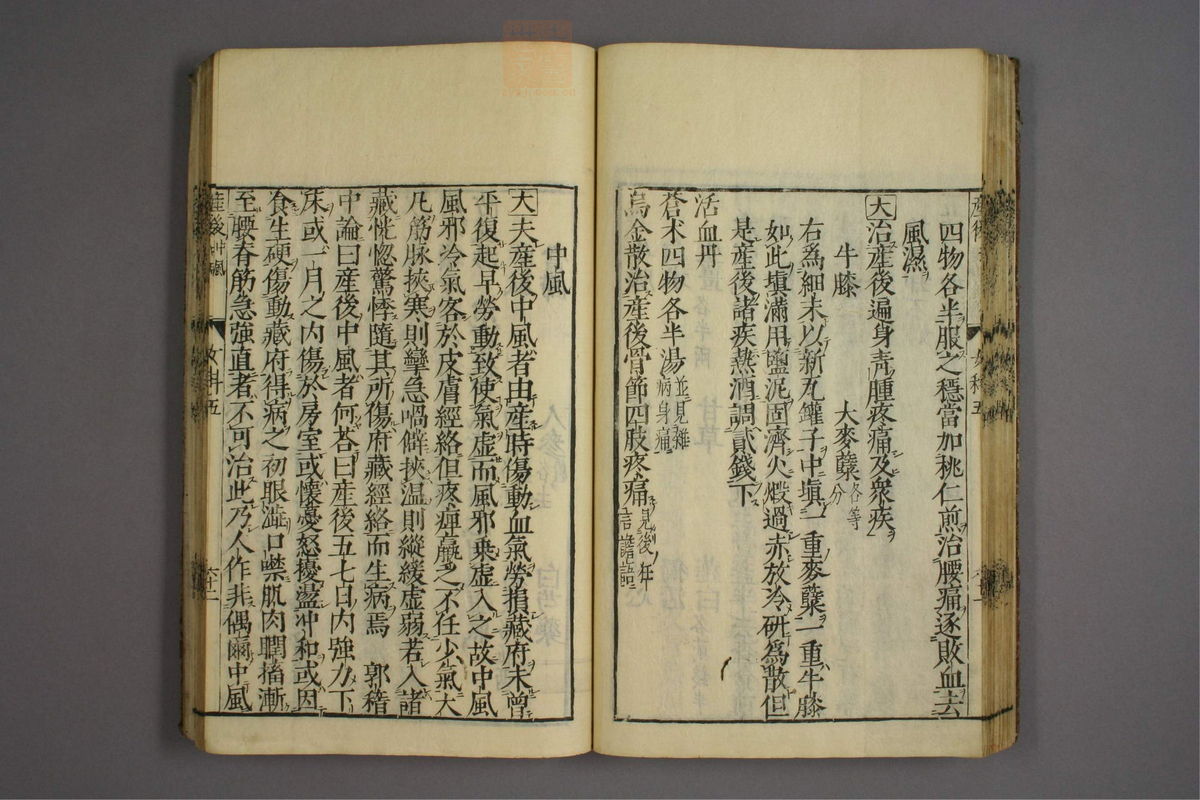 四物各半服之穩當加桃仁煎治腰痛逐敗血去
風濕
大治產後遍身靑腫疼痛及衆疾
牛膝　大麥蘖各等分
右爲細末以新瓦罐子中塡一重麥蘖一重牛膝
如此塡滿用鹽泥固濟火煅過赤放冷研爲散但
是產後諸疾𤍠酒調貳錢下
活血丹
蒼朮四物各半湯並見雜病身痛
烏金散治產後骨節四肢疼痛見後狂言譫語
中風
大夫產後中風者由產時傷動血氣勞損藏府未曾
平復起早勞動致使氣虛而風邪乘虛入之故中風
風邪冷氣客於皮膚經絡但疼痺羸乏不任少氣大
凡筋脉挾寒則攣急喎僻挾温則縱緩虛弱若入諸
藏恍惚驚悸隨其所傷府藏經絡而生病焉　郭稽
中論曰產後中風者何荅曰產後五七日内強力下
床或一月之内傷於房室或懷憂怒擾盪冲和或因
食生硬傷動藏府得病之初眼澁口噤肌肉瞤搐漸
至腰脊筋急強直者不可治此乃人作非偶爾中風
產後中風
女科五